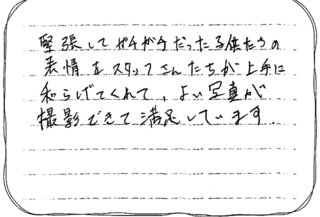 緊張してガチガチだったる俵たちの
表情をスタッフさんたちが上手に
和らげてくれて、よい写真が
撮影できて満足しています.